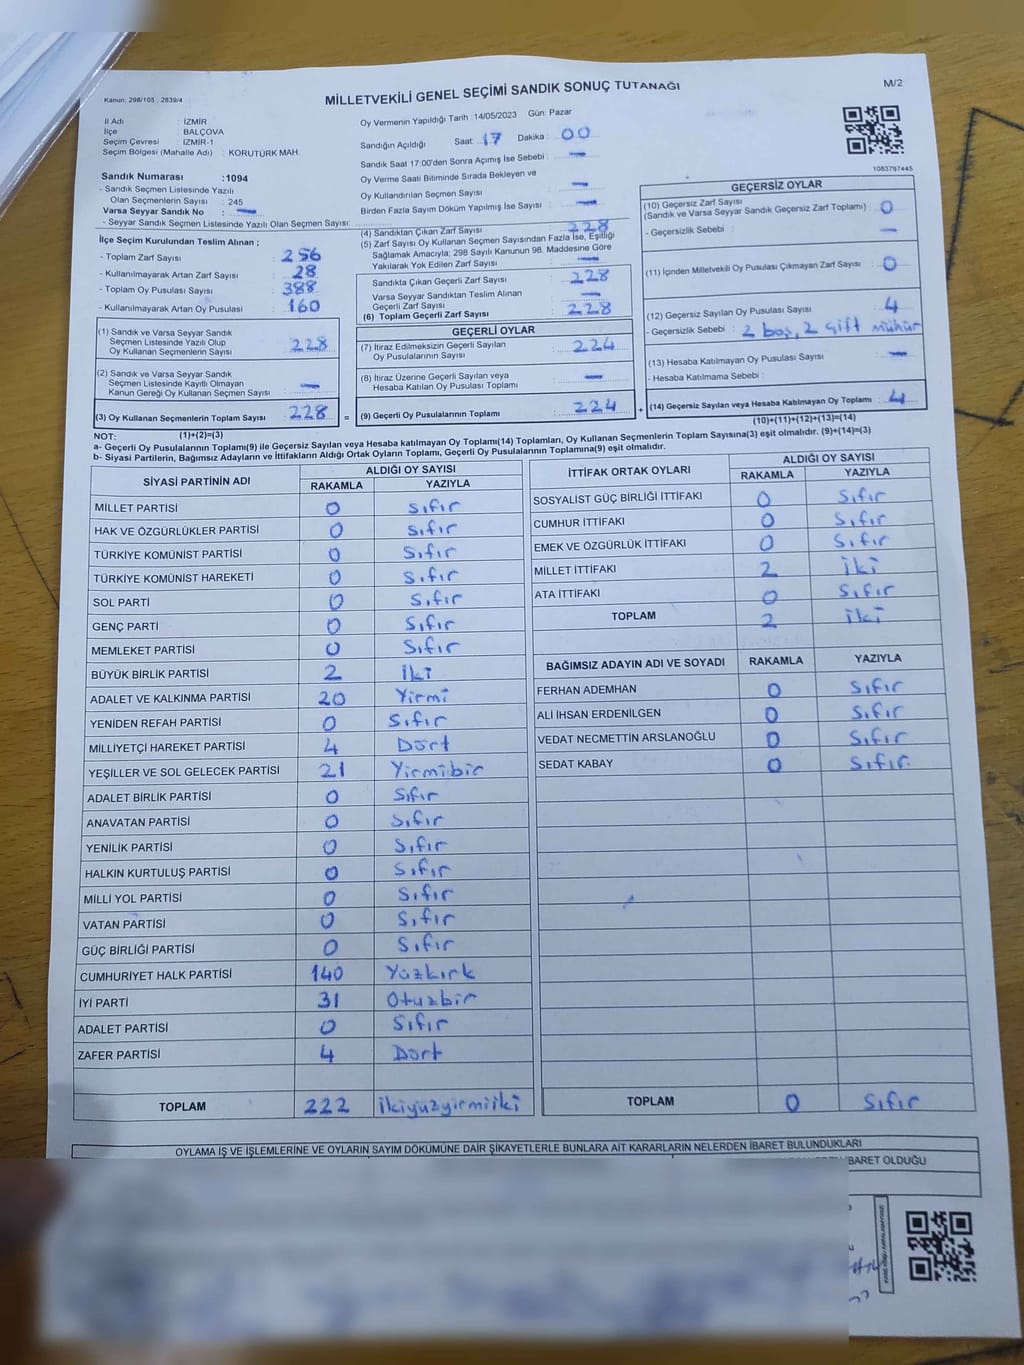 Kanun: 298/105 , 2839/4
MİLLETVEKİLİ GENEL SEÇİMİ SANDIK SONUÇ TUTANAĞI
M/2
İl Adı : İZMİR
İlçe : BALÇOVA
Seçim Çevresi : İZMİR-1
Seçim Bölgesi (Mahalle Adı) : KORUTÜRK MAH.
Sandık Numarası :1094
- Sandık Seçmen Listesinde Yazılı
Olan Seçmenlerin Sayısı : 245
Varsa Seyyar Sandık No : —
- Seyyar Sandık Seçmen Listesinde Yazılı Olan Seçmen Sayısı:
İlçe Seçim Kurulundan Teslim Alınan ;
- Toplam Zarf Sayısı : 256
- Kullanılmayarak Artan Zarf Sayısı : 28
- Toplam Oy Pusulası Sayısı : 388
- Kullanılmayarak Artan Oy Pusulası : 160
(1) Sandık ve Varsa Seyyar Sandık
Seçmen Listesinde Yazılı Olup
Oy Kullanan Seçmenlerin Sayısı : 228
(2) Sandık ve Varsa Seyyar Sandık
Seçmen Listesinde Kayıtlı Olmayan
Kanun Gereği Oy Kullanan Seçmen Sayısı : —
(3) Oy Kullanan Seçmenlerin Toplam Sayısı : 228 =
(1)+(2)=(3)
Oy Vermenin Yapıldığı Tarih :14/05/2023 Gün: Pazar
Sandığın Açıldığı Saat: 17 Dakika : 00
Sandık Saat 17:00'den Sonra Açımış İse Sebebi : —
Oy Verme Saati Bitiminde Sırada Bekleyen ve
Oy Kullandırılan Seçmen Sayısı : —
Birden Fazla Sayım Döküm Yapılmış İse Sayısı : —
(4) Sandıktan Çıkan Zarf Sayısı : 228
(5) Zarf Sayısı Oy Kullanan Seçmen Sayısından Fazla İse, Eşitliği
Sağlamak Amacıyla; 298 Sayılı Kanunun 98. Maddesine Göre
Yakılarak Yok Edilen Zarf Sayısı : —
Sandıkta Çıkan Geçerli Zarf Sayısı : 228
Varsa Seyyar Sandıktan Teslim Alınan
Geçerli Zarf Sayısı : —
(6) Toplam Geçerli Zarf Sayısı : 228
GEÇERLİ OYLAR
(7) İtiraz Edilmeksizin Geçerli Sayılan
Oy Pusulalarının Sayısı : 224
(8) İtiraz Üzerine Geçerli Sayılan veya
Hesaba Katılan Oy Pusulası Toplamı : —
(9) Geçerli Oy Pusulalarının Toplamı : 224 +
1083787445
GEÇERSİZ OYLAR
(10) Geçersiz Zarf Sayısı
(Sandık ve Varsa Seyyar Sandık Geçersiz Zarf Toplamı) : 0
- Geçersizlik Sebebi : —
(11) İçinden Milletvekili Oy Pusulası Çıkmayan Zarf Sayısı : 0
(12) Geçersiz Sayılan Oy Pusulası Sayısı : 4
- Geçersizlik Sebebi : 2 boş, 2 çift mühür
(13) Hesaba Katılmayan Oy Pusulası Sayısı : —
- Hesaba Katılmama Sebebi :
(14) Geçersiz Sayılan veya Hesaba Katılmayan Oy Toplamı : 4
(10)+(11)+(12)+(13)=(14)
NOT:
a- Geçerli Oy Pusulalarının Toplamı(9) ile Geçersiz Sayılan veya Hesaba katılmayan Oy Toplamı(14) Toplamları, Oy Kullanan Seçmenlerin Toplam Sayısına(3) eşit olmalıdır. (9)+(14)=(3)
b- Siyasi Partilerin, Bağımsız Adayların ve İttifakların Aldığı Ortak Oyların Toplamı, Geçerli Oy Pusulalarının Toplamına(9) eşit olmalıdır.
SİYASİ PARTİNİN ADI ALDIĞI OY SAYISI
RAKAMLA YAZIYLA
MİLLET PARTİSİ 0 Sıfır
HAK VE ÖZGÜRLÜKLER PARTİSİ 0 Sıfır
TÜRKİYE KOMÜNİST PARTİSİ 0 Sıfır
TÜRKİYE KOMÜNİST HAREKETİ 0 Sıfır
SOL PARTİ 0 Sıfır
GENÇ PARTİ 0 Sıfır
MEMLEKET PARTİSİ 0 Sıfır
BÜYÜK BİRLİK PARTİSİ 2 İki
ADALET VE KALKINMA PARTİSİ 20 Yirmi
YENİDEN REFAH PARTİSİ 0 Sıfır
MİLLİYETÇİ HAREKET PARTİSİ 4 Dört
YEŞİLLER VE SOL GELECEK PARTİSİ 21 Yirmibir
ADALET BİRLİK PARTİSİ 0 Sıfır
ANAVATAN PARTİSİ 0 Sıfır
YENİLİK PARTİSİ 0 Sıfır
HALKIN KURTULUŞ PARTİSİ 0 Sıfır
MİLLİ YOL PARTİSİ 0 Sıfır
VATAN PARTİSİ 0 Sıfır
GÜÇ BİRLİĞİ PARTİSİ 0 Sıfır
CUMHURİYET HALK PARTİSİ 140 Yüzkırk
İYİ PARTİ 31 Otuzbir
ADALET PARTİSİ 0 Sıfır
ZAFER PARTİSİ 4 Dört
TOPLAM 222 İkiyüzyirmiiki
İTTİFAK ORTAK OYLARI ALDIĞI OY SAYISI
RAKAMLA YAZIYLA
SOSYALİST GÜÇ BİRLİĞİ İTTİFAKI 0 Sıfır
CUMHUR İTTİFAKI 0 Sıfır
EMEK VE ÖZGÜRLÜK İTTİFAKI 0 Sıfır
MİLLET İTTİFAKI 2 İki
ATA İTTİFAKI 0 Sıfır
TOPLAM 2 İki
BAĞIMSIZ ADAYIN ADI VE SOYADI RAKAMLA YAZIYLA
FERHAN ADEMHAN 0 Sıfır
ALİ İHSAN ERDENİLGEN 0 Sıfır
VEDAT NECMETTİN ARSLANOĞLU 0 Sıfır
SEDAT KABAY 0 Sıfır.
TOPLAM 0 Sıfır
OYLAMA İŞ VE İŞLEMLERİNE VE OYLARIN SAYIM DÖKÜMÜNE DAİR ŞİKAYETLERLE BUNLARA AİT KARARLARIN NELERDEN İBARET BULUNDUKLARI
İBARET OLDUĞU